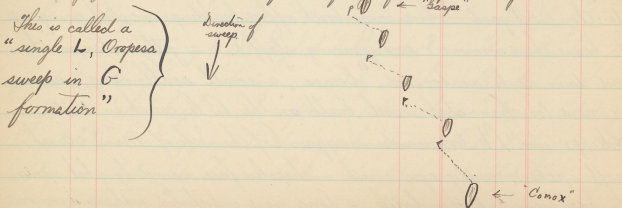 This is called a
"single L, Oropesa
sweep in G
formation"
Direction of
sweep
"Gaspe"
"Comox"